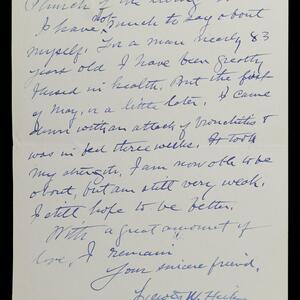 Church of the
I have not much to say about
myself. For a man nearly 83
years old I have been greatly
blessed in health. But the first
of May, or a little later, I came
down with an attack of bronchitis &
was in bed three weeks. It took
my strength. I am now able to be
about, but am still very weak.
I still hope to be better.
With a great amount of
love, I remain
Your sincere friend,
W.